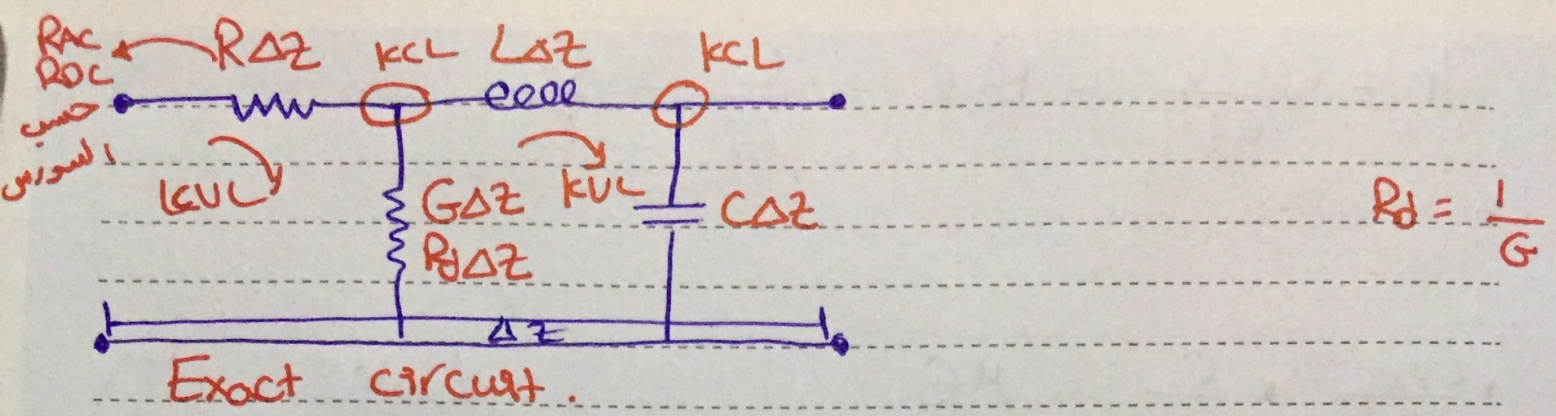 RAC
RDC
حسب
السورس
RΔZ
KCL
LΔZ
KCL
KVL
GΔZ
RdΔZ
KVL
CΔZ
Rd = 1/G
ΔZ
Exact circuit.